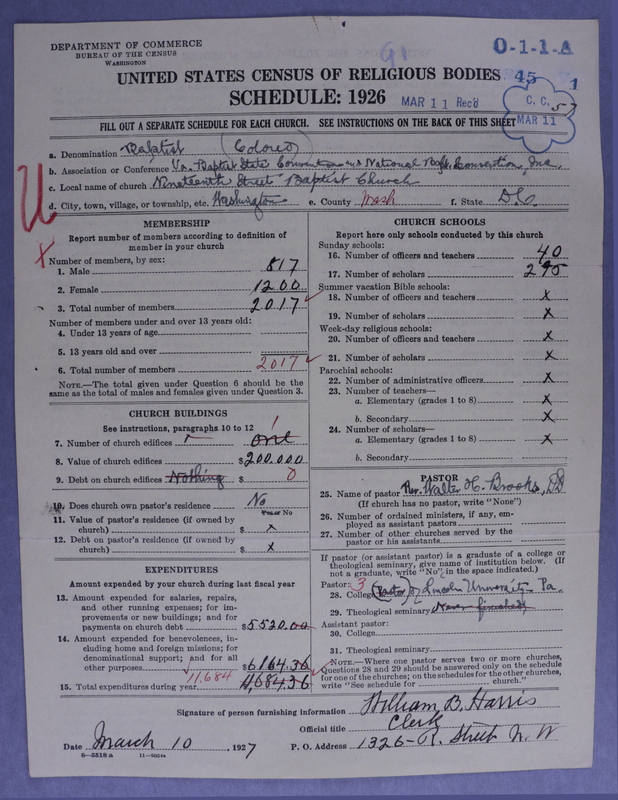 DEPARTMENT OF COMMERCE
BUREAU OF THE CENSUS
WASHINGTON
0-1-1-A
UNITED STATES CENSUS OF RELIGIOUS BODIES
45 1
SCHEDULE: 1926
MAR 11 Rec'd
C. C. 57
MAR 11
FILL OUT A SEPARATE SCHEDULE FOR EACH CHURCH. SEE INSTRUCTIONS ON THE BACK OF THIS SHEET
a. Denomination Baptist (Colored)
b. Association or Conference Va. Baptist State Convention and National Bapt. Convention, Inc.
c. Local name of church Nineteenth Street Baptist Church
d. City, town, village, or township, etc. Washington e. County Wash f. State D.C.
MEMBERSHIP
Report number of members according to definition of
member in your church
Number of members, by sex:
1. Male 817
2. Female 1200
3. Total number of members 2017
Number of members under and over 13 years old:
4. Under 13 years of age
5. 13 years old and over
6. Total number of members 2017
NOTE.—The total given under Question 6 should be
the same as the total of males and females given under Question 3.
CHURCH BUILDINGS
See instructions, paragraphs 10 to 12
7. Number of church edifices one 1
8. Value of church edifices $200.000
9. Debt on church edifices Nothing $ 0
10. Does church own pastor's residence No
Yes or No
11. Value of pastor's residence (if owned by
church) $ x
12. Debt on pastor's residence (if owned by
church) $ x
EXPENDITURES
Amount expended by your church during last fiscal year
13. Amount expended for salaries, repairs,
and other running expenses; for im-
provements or new buildings; and for
payments on church debt $5520.00
14. Amount expended for benevolences, in-
cluding home and foreign missions; for
denominational support; and for all
other purposes $6164.36
11,684
15. Total expenditures during year 11,684.36
CHURCH SCHOOLS
Report here only schools conducted by this church
Sunday schools:
16. Number of officers and teachers 40
17. Number of scholars 295
Summer vacation Bible schools:
18. Number of officers and teachers x
19. Number of scholars x
Week-day religious schools:
20. Number of officers and teachers x
21. Number of scholars x
Parochial schools:
22. Number of administrative officers x
23. Number of teachers—
a. Elementary (grades 1 to 8) x
b. Secondary x
24. Number of scholars—
a. Elementary (grades 1 to 8) x
b. Secondary
PASTOR
25. Name of pastor Rev. Walter H. Brooks, DD
(If church has no pastor, write "None")
26. Number of ordained ministers, if any, em-
ployed as assistant pastors
27. Number of other churches served by the
pastor or his assistants
If pastor (or assistant pastor) is a graduate of a college or
theological seminary, give name of institution below. (If
not a graduate, write "No" in the space indicated.)
Pastor: 3
28. College (Pastor) of Lincoln University Pa.
29. Theological seminary Never finished
Assistant pastor:
30. College
31. Theological seminary
NOTE.—Where one pastor serves two or more churches,
Questions 28 and 29 should be answered only on the schedule
for one of the churches; on the schedules for the other churches,
write "See schedule for church."
Signature of person furnishing information William B. Harris
Official title Clerk
Date March 10, 1927 P. O. Address 1326-R. Street N. W